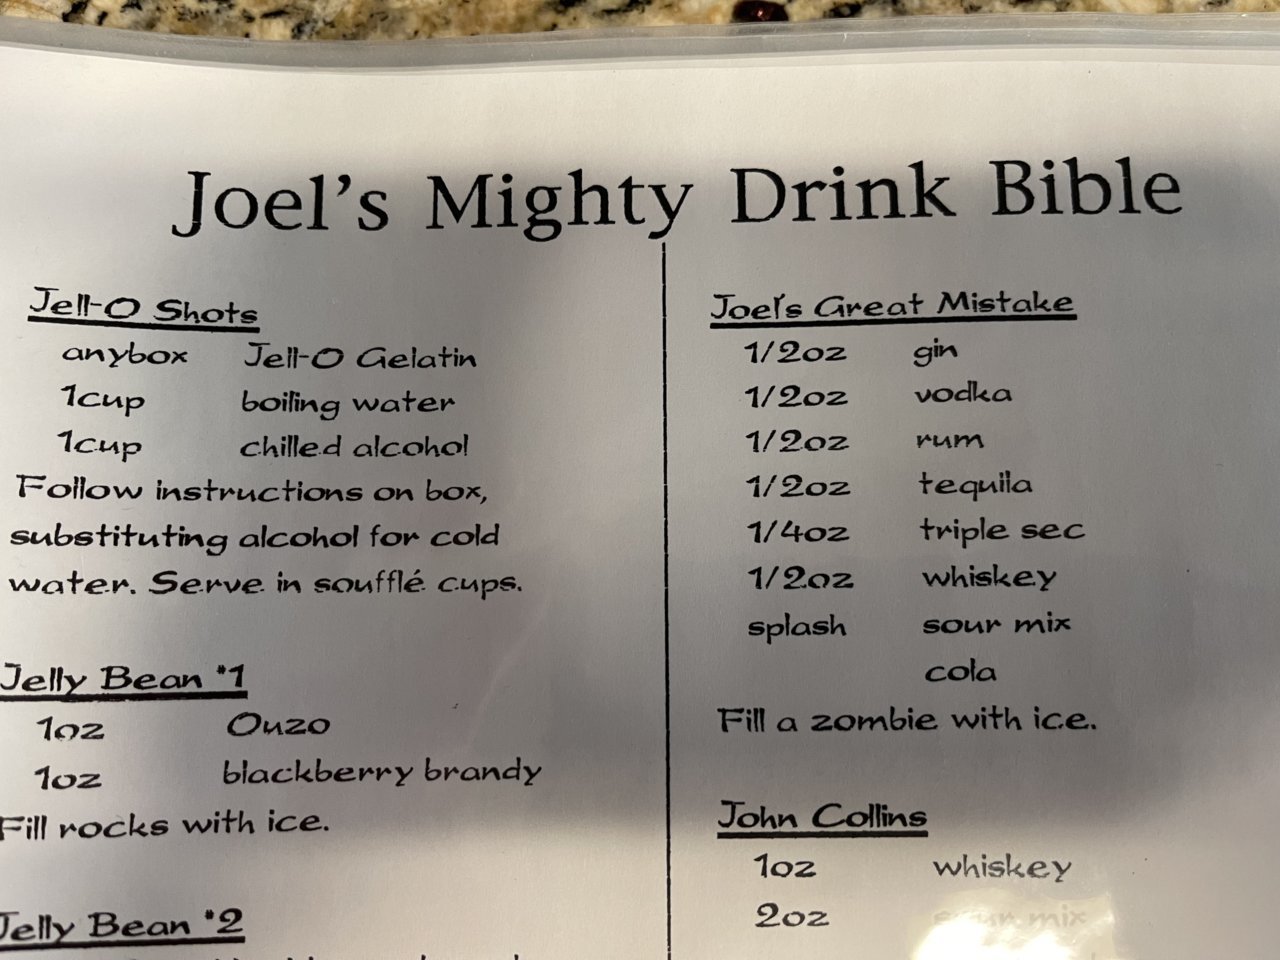 Joel's Mighty Drink Bible
Jell-O Shots
anybox Jell-O Gelatin
1cup boiling water
1cup chilled alcohol
Follow instructions on box,
substituting alcohol for cold
water. Serve in soufflé cups.
Jelly Bean #1
1oz Ouzo
1oz blackberry brandy
Fill rocks with ice.
Jelly Bean #2
Joel's Great Mistake
1/2oz gin
1/2oz vodka
1/2oz rum
1/2oz tequila
1/4oz triple sec
1/2oz whiskey
splash sour mix
cola
Fill a zombie with ice.
John Collins
1oz whiskey
2oz sour mix